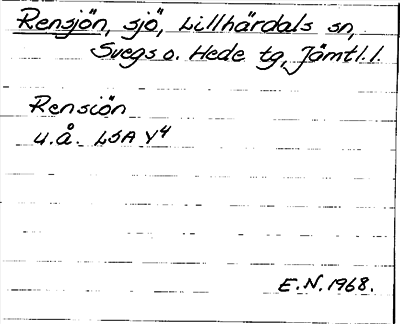 Rensjön, sjö, Lillhärdals sn,
Svegs o. Hede tg, Jämtl. l.
Rensiön
u.å. LSA Y4
E.N. 1968.